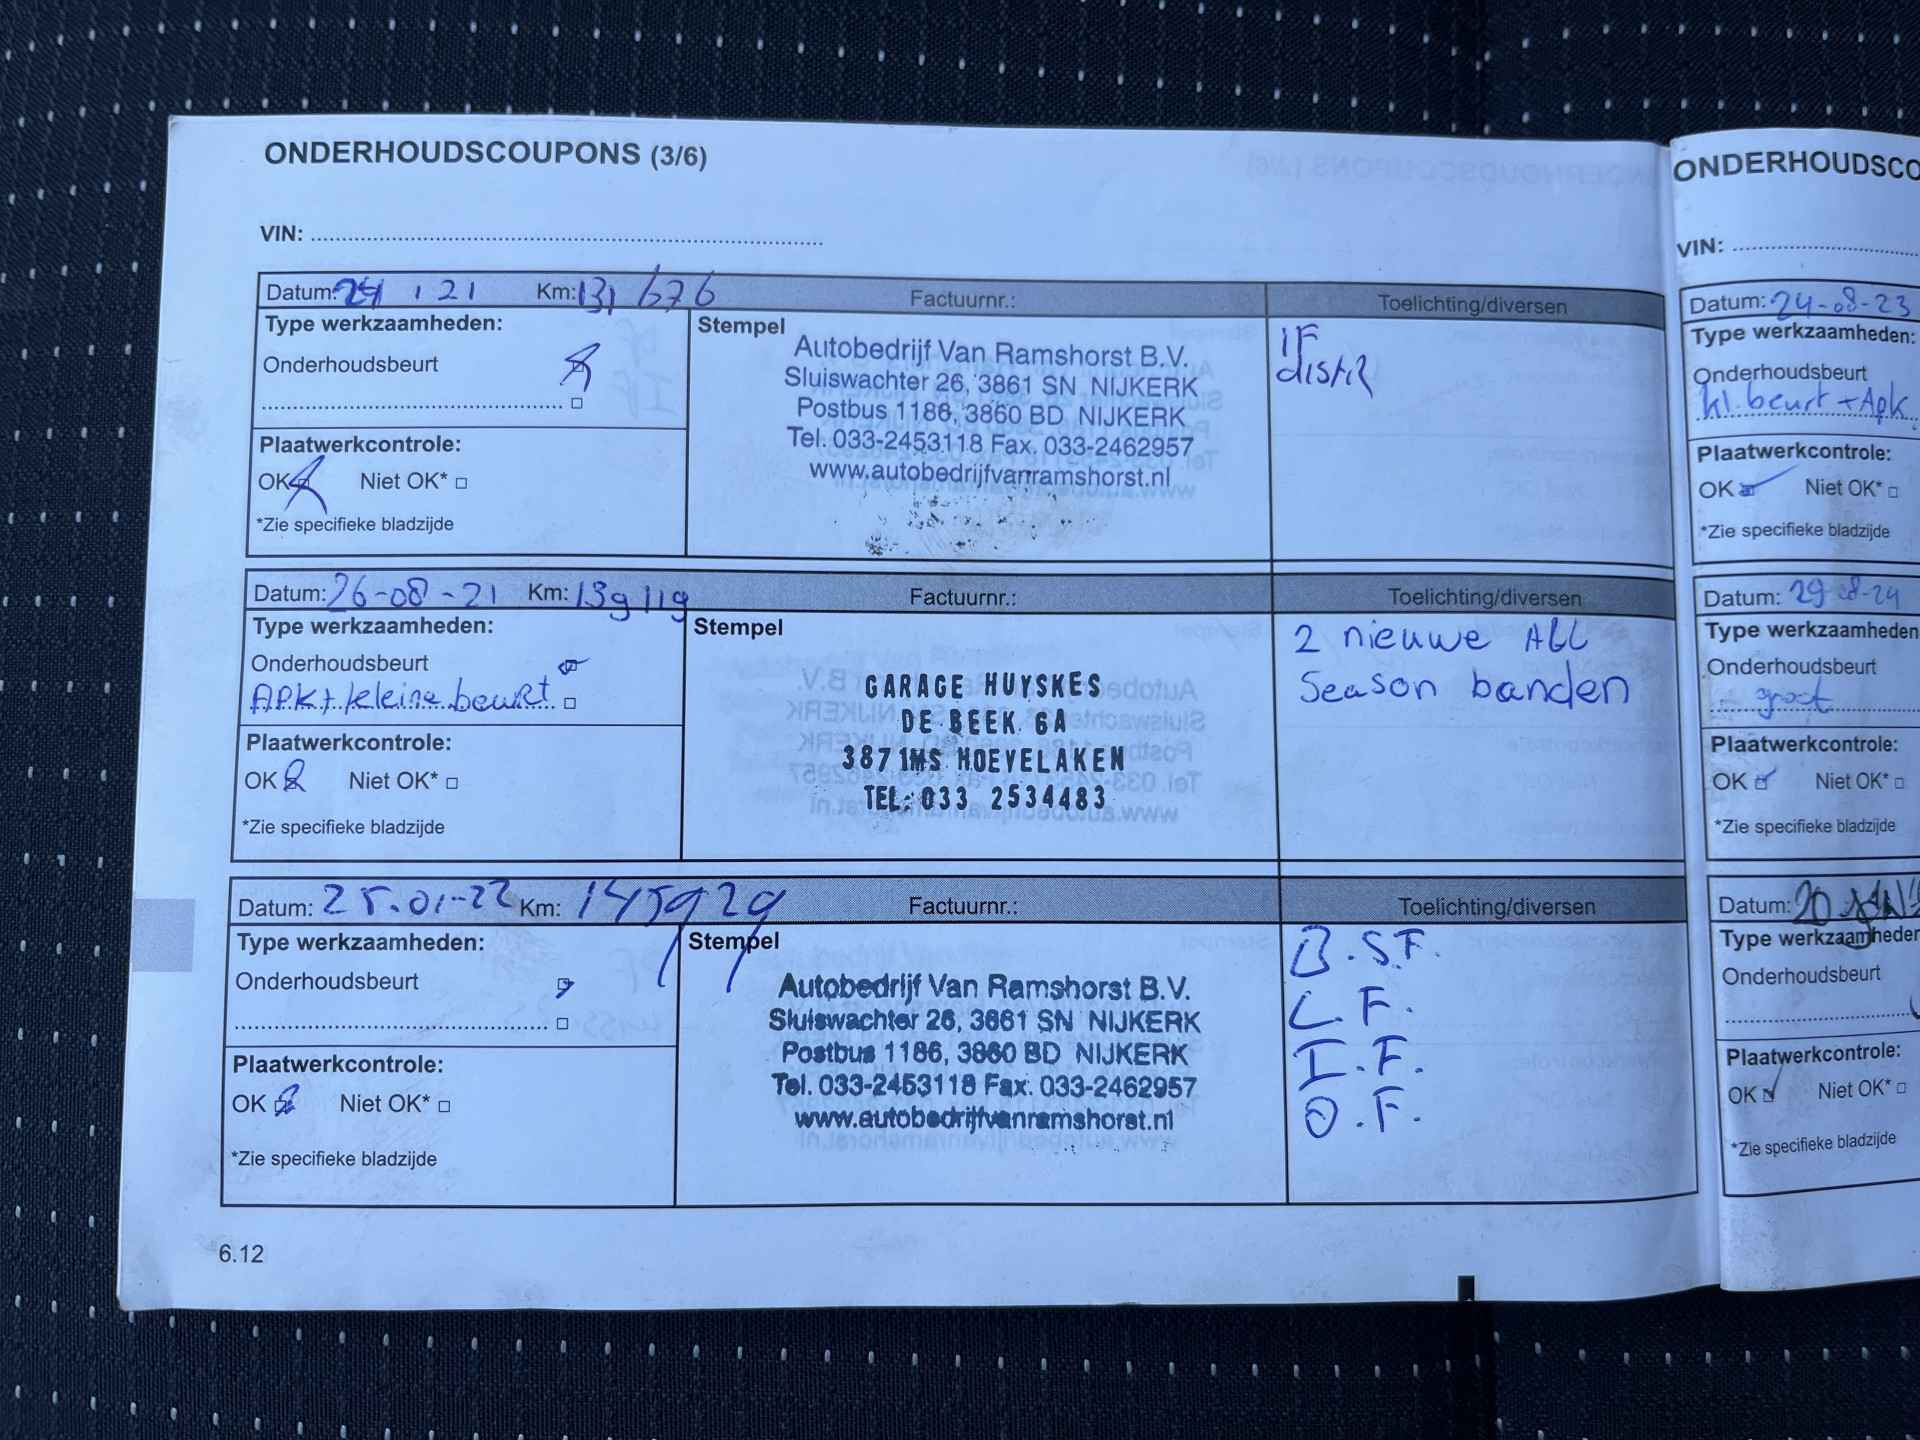 ONDERHOUDSCOUPONS (3/6)
VIN:
Datum: 1 21 Km: 131 676 Factuurnr.: Toelichting/diversen
Type werkzaamheden:
Onderhoudsbeurt
Plaatwerkcontrole:
OK Niet OK*
*Zie specifieke bladzijde
Stempel
Autobedrijf Van Ramshorst B.V.
Sluiswachter 26, 3861 SN NIJKERK
Postbus 1186, 3860 BD NIJKERK
Tel. 033-2453118 Fax. 033-2462957
www.autobedrijfvanramshorst.nl
IF
distr
Datum: 26-08-21 Km: 139 119 Factuurnr.: Toelichting/diversen
Type werkzaamheden:
Onderhoudsbeurt
APK + kleine beurt
Plaatwerkcontrole:
OK Niet OK*
*Zie specifieke bladzijde
Stempel
GARAGE HUYSKES
DE BEEK 6A
3871MS HOEVELAKEN
TEL: 033 2534483
2 nieuwe All
Season banden
Datum: 25.01-22 Km: 145929 Factuurnr.: Toelichting/diversen
Type werkzaamheden:
Onderhoudsbeurt
Plaatwerkcontrole:
OK Niet OK*
*Zie specifieke bladzijde
Stempel
Autobedrijf Van Ramshorst B.V.
Sluiswachter 26, 3861 SN NIJKERK
Postbus 1186, 3860 BD NIJKERK
Tel. 033-2453118 Fax. 033-2462957
www.autobedrijfvanramshorst.nl
B.S.F.
L.F.
I.F.
O.F.
6.12
ONDERHOUDSCO
VIN:
Datum: 24-08-23
Type werkzaamheden:
Onderhoudsbeurt
kl. beurt + Apk
Plaatwerkcontrole:
OK Niet OK*
*Zie specifieke bladzijde
Datum: 29-08-24
Type werkzaamheden
Onderhoudsbeurt
groot
Plaatwerkcontrole:
OK Niet OK*
*Zie specifieke bladzijde
Datum: 20
Type werkzaamheden
Onderhoudsbeurt
Plaatwerkcontrole:
OK Niet OK*
*Zie specifieke bladzijde